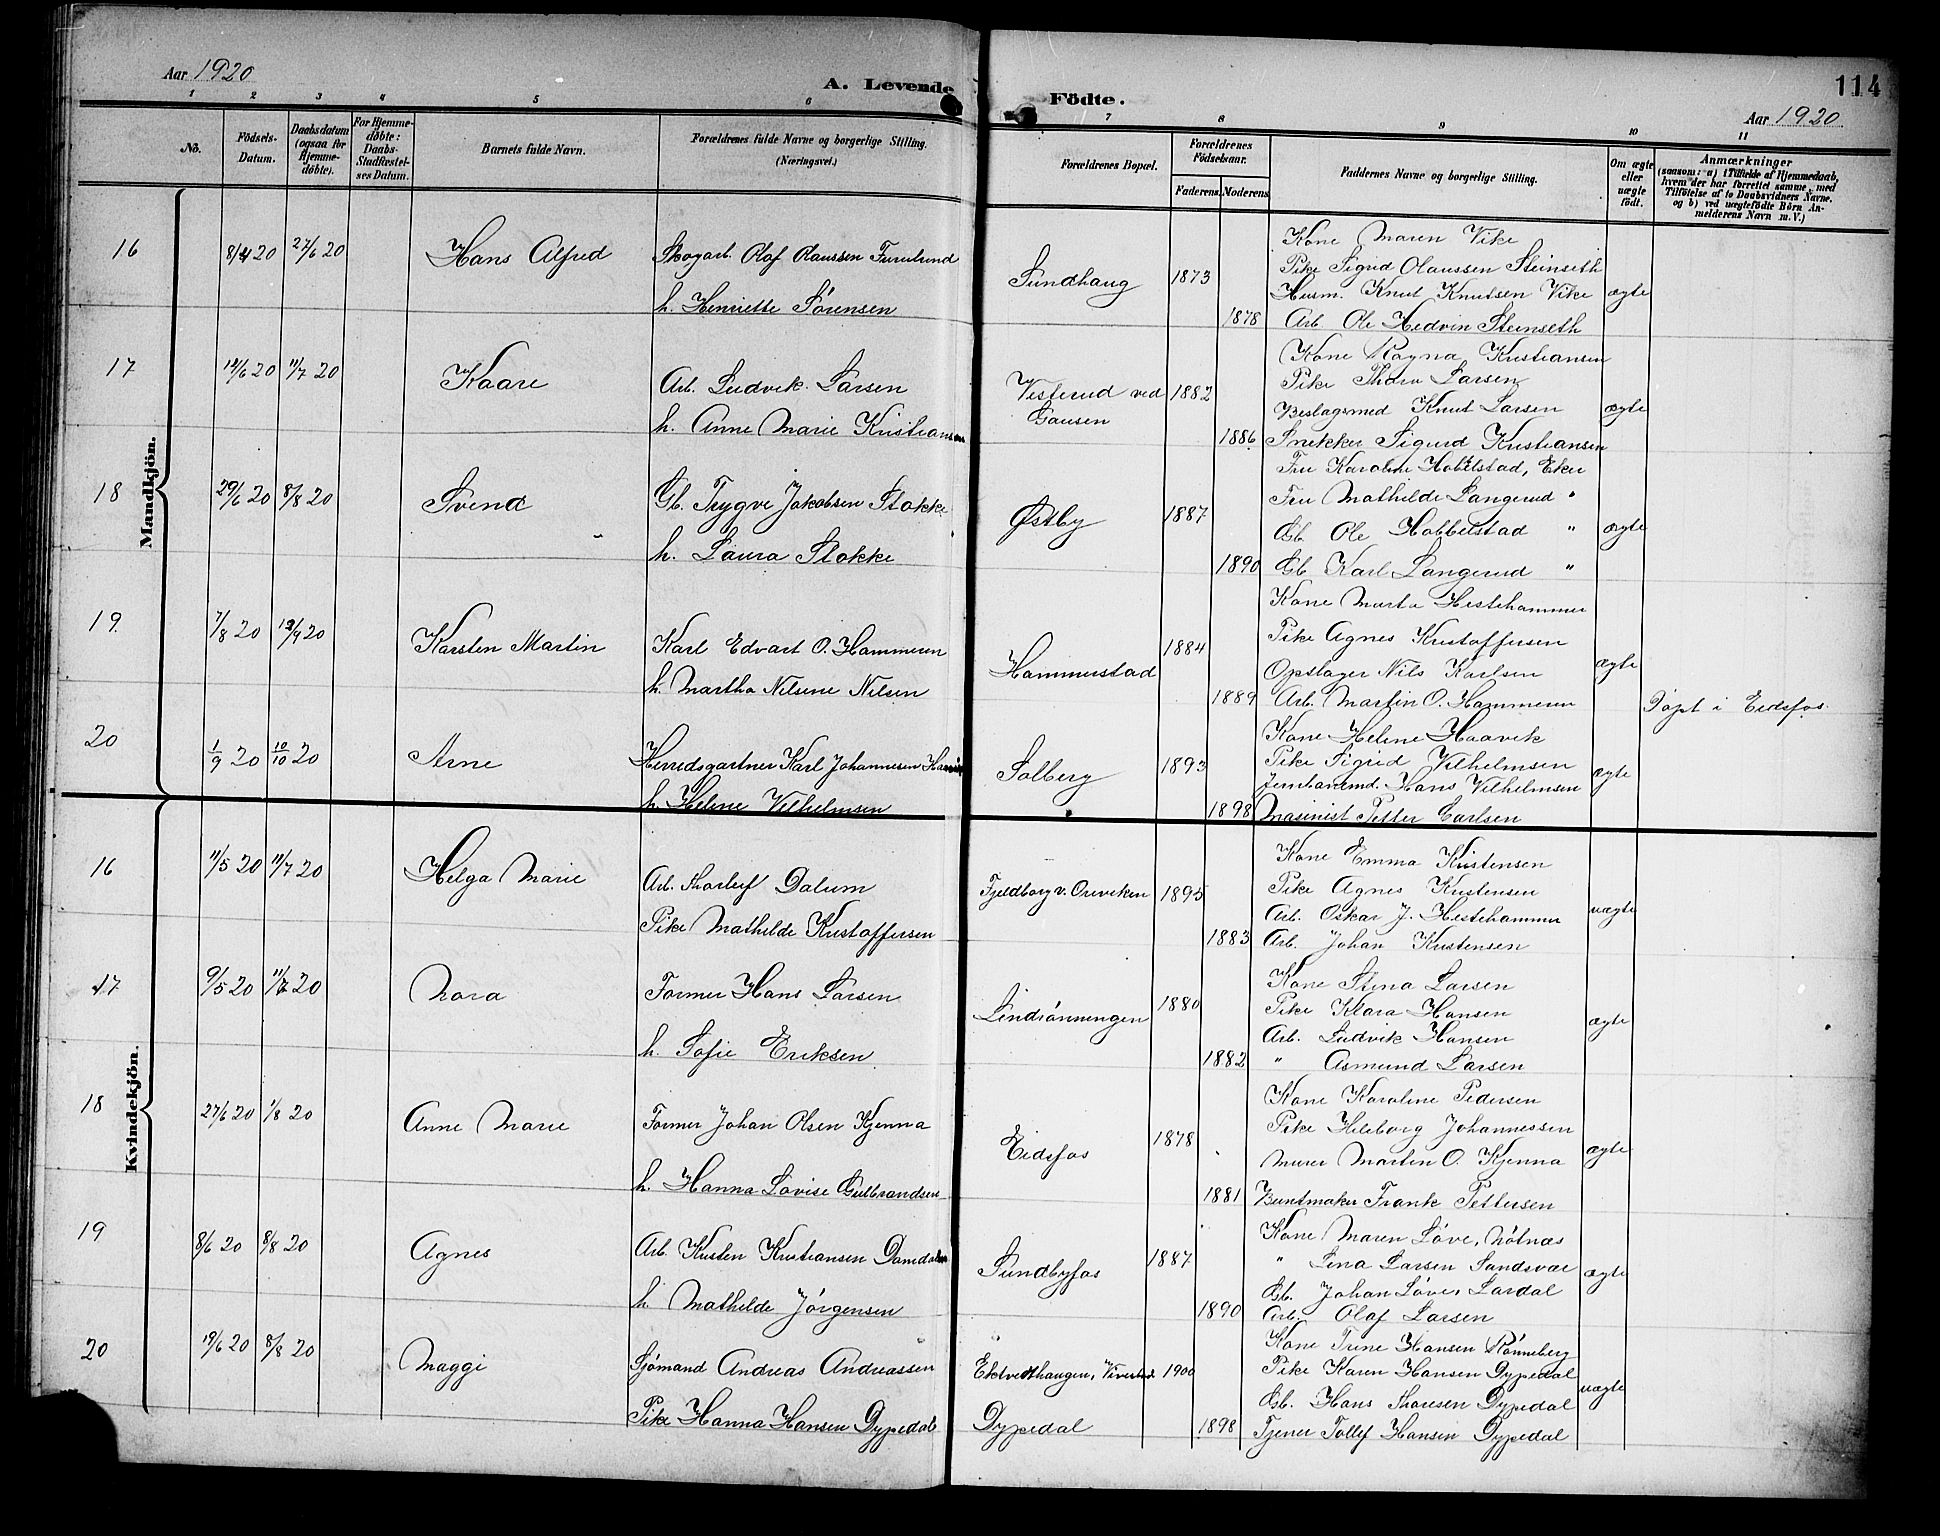 Aar 1920
A. Levende Födte.
114
Aar 1920
1 2 3 4 5 6 7 8 9 10 11
No.
Födsels-Datum.
Daabsdatum (ogsaa for Hjemme-döbte).
For Hjemme-döbte: Daabs-Stadfæstel-ses Datum.
Barnets fulde Navn.
Forældrenes fulde Navne og borgerlige Stilling. (Næringsvei.)
Forældrenes Bopæl.
Forældrenes Födselsaar.
Faderens. Moderens.
Faddernes Navne og borgerlige Stilling.
Om ægte eller uægte födt.
Anmærkninger
(saasom: a) i Tilfælde af Hjemmedaab, hvem der har forrettet samme, med Tilföielse af to Daabsvidners Navne. og b) ved uægtefödte Börn An-melderens Navn m.V.)
Mandkjön.
16 8/4 20 27/6 20 Hans Alfred
Skogarb. Olaf Olaussen Furulund
h. Henriette Sørensen
Sundhaug 1873
1878
Kone Maren Vike
Pike Sigrid Olaussen Steinseth
Husm. Knut Knutsen Vike
Arb. Ole Hedvin Steinseth
ægte
17 12/6 20 11/7 20 Kaare
Arb. Ludvik Larsen
h. Anne Marie Kristiansen
Vesterud ved Gausen 1882
1886
Kone Ragna Kristiansen
Pike Thora Larsen
Beslagsmed Knut Larsen
Snekker Sigurd Kristiansen
ægte
18 29/6 20 8/8 20 Svend
Gb. Trygve Jakobsen Stokke
h. Laura Stokke
Østby 1887
1890
Fru Karoline Hobelstad, Eker
Fru Mathilde Langerud "
Gb. Ole Hobbelstad "
Gb. Karl Langerud "
ægte
19. 7/8 20 12/9 20 Karsten Martin
Karl Edvart O. Hammeren
h. Martha Nilsine Nilsen
Hammerstad 1884
1889
Kone Marta Hestehammer
Pike Agnes Kristoffersen
Opslager Nils Karlsen
Arb. Martin O. Hammeren
ægte
Døpt i Eidsfos.
20 1/9 20 10/10 20 Arne
Herredsgartner Karl Johannesen
h. Helene Vilhelmsen
Solberg 1893
1898
Kone Helene Haavik
Pike Sigrid Vilhelmsen
Jernbanemd. Hans Vilhelmsen
Masinist Petter Carlsen
ægte
Kvindekjön.
16 11/5 20 11/7 20 Helga Marie
Arb. Thorleif Dalum
Pike Mathilde Kristoffersen
Fjeldborg v. Oreviken 1895
1883
Kone Emma Kristensen
Pike Agnes Kristensen
Arb. Oskar J. Hestehammer
Arb. Johan Kristensen
uægte
17 9/5 20 11/7 20 Nora
Former Hans Larsen
h. Sofie Eriksen
Lindrønningen 1880
1882
Kone Stina Larsen
Pike Klara Hansen
Arb. Ludvik Hansen
" Asmund Larsen
ægte
18 27/6 20 1/8 20 Anne Marie
Former Johan Olsen Kjenna
h. Hanna Lovise Gulbrandsen
Eidsfos 1878
1881
Kone Karoline Pedersen
Pike Hilborg Johannessen
Murer Martin O. Kjenna
Buntmaker Frank Pettersen
ægte
19 8/6 20 8/8 20 Agnes
Arb. Kristen Kristiansen
h. Mathilde Jørgensen
Sundbyfos 1887
1890
Kone Maren Løve, Nøtnæs
" Lina Larsen Sandsvær
Gb. Johan Løver Lardal
Arb. Olaf Larsen
ægte
20 19/6 20 8/8 20 Maggi
Sjømand Andreas Andreassen
Pike Hanna Hansen Dypedal
Ektvedthaugen, Vivestad 1900
Dypedal 1898
Kone Trine Hansen Rønneberg
Pike Karen Hansen Dypedal
Gb. Hans Thoresen Dypedal
Tjener Tollef Hansen Dypedal
uægte